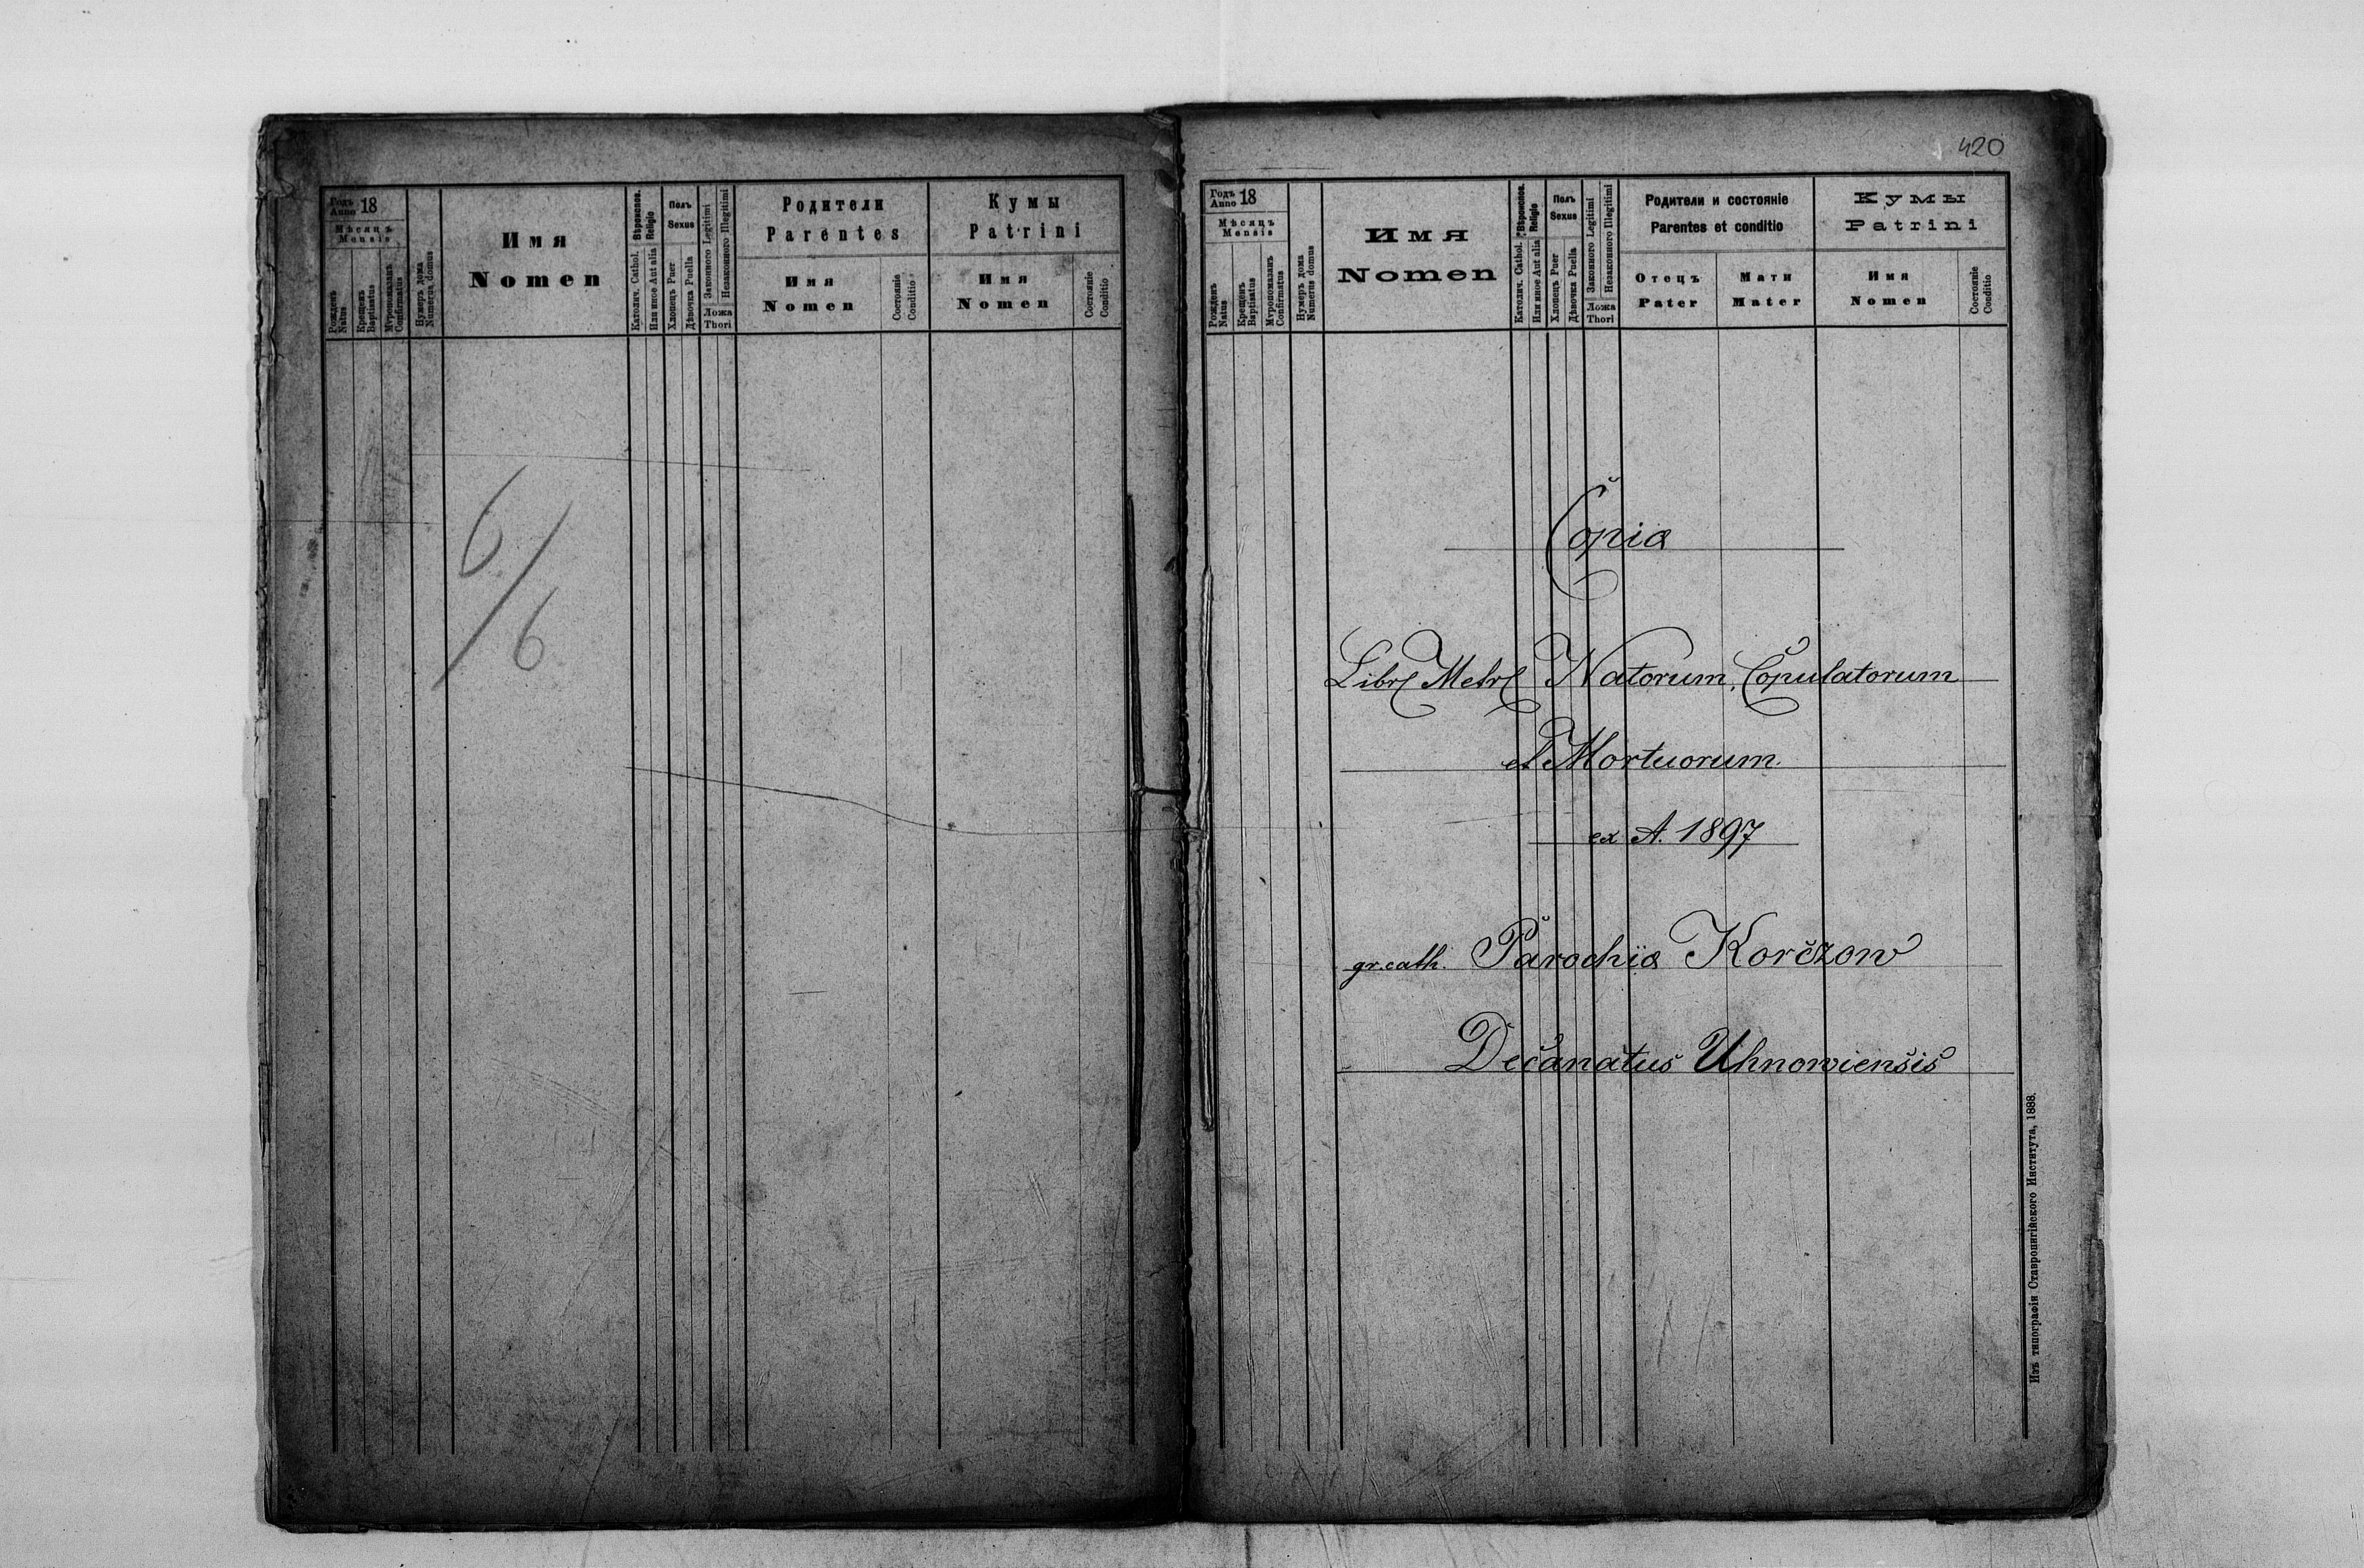 Годъ
Anno 18
Мѣсяцъ
Mensis
Рожденъ
Natus
Крещенъ
Baptisatus
Мѵропомазанъ
Confirmatus
Нумеръ дома
Numerus domus
Имя
Nomen
Вѣроиспов.
Religio
Католич. Cathol.
Или иное Aut alia
Полъ
Sexus
Хлопецъ Puer
Дѣвочка Puella
Законного Legitimi
Незаконного Illegitimi
Ложа
Thori
Родители
Parentes
Имя
Nomen
Состояніе
Conditio
Кумы
Patrini
Имя
Nomen
Состояніе
Conditio
6/6
420
Годъ
Anno 18
Мѣсяцъ
Mensis
Рожденъ
Natus
Крещенъ
Baptisatus
Мѵропомазанъ
Confirmatus
Нумеръ дома
Numerus domus
Имя
Nomen
Вѣроиспов.
Religio
Католич. Cathol.
Или иное Aut alia
Полъ
Sexus
Хлопецъ Puer
Дѣвочка Puella
Законного Legitimi
Незаконного Illegitimi
Ложа
Thori
Родители и состояніе
Parentes et conditio
Отецъ
Pater
Мати
Mater
Кумы
Patrini
Имя
Nomen
Состояніе
Conditio
Copia
Libr Metr Natorum, Copulatorum
et Mortuorum
ex A. 1897
gr. cath. Parochia Korczow
Decanatus Uhnowiensis
Изъ типографіи Ставропигійского Института, 1888.